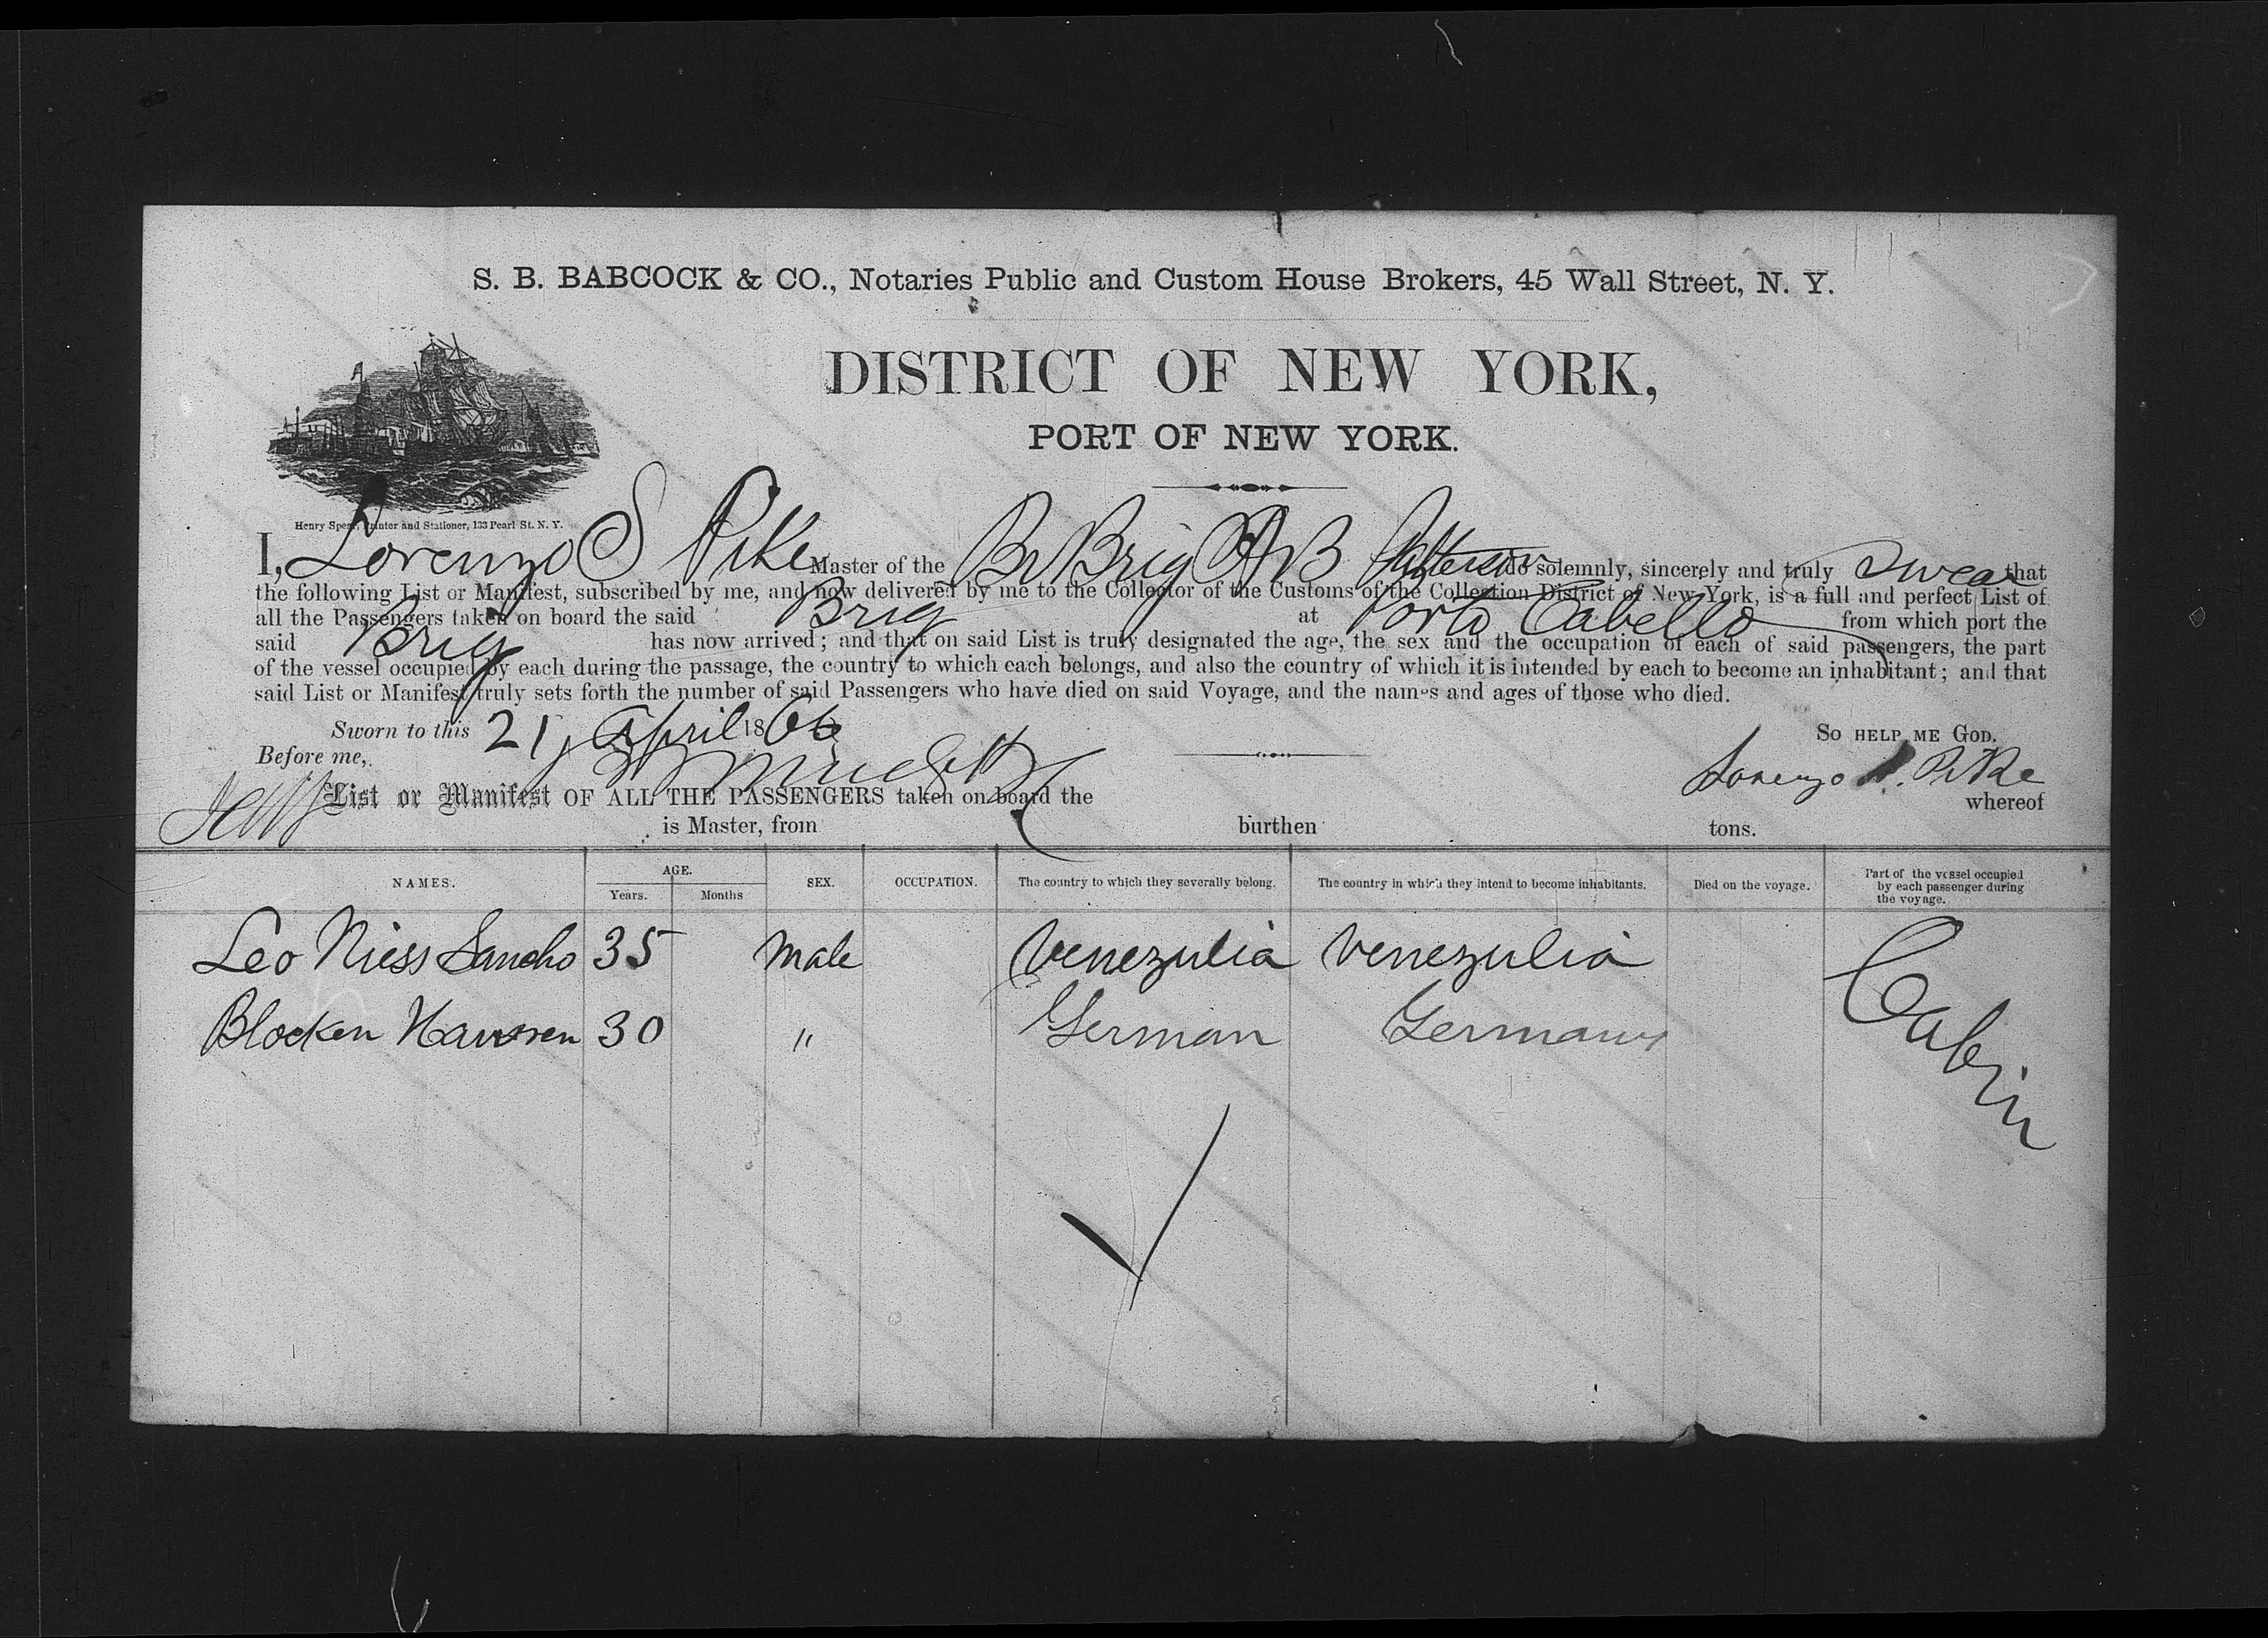 S. B. BABCOCK & CO., Notaries Public and Custom House Brokers, 45 Wall Street, N. Y.
DISTRICT OF NEW YORK,
PORT OF NEW YORK.
Henry Spear, Printer and Stationer, 133 Pearl St. N. Y.
I, Lorenzo S Pike Master of the Br Brig A B Patterson do solemnly, sincerely and truly swear that
the following List or Manifest, subscribed by me, and now delivered by me to the Collector of the Customs of the Collection District of New York, is a full and perfect List of
all the Passengers taken on board the said Brig at Porto Cabello from which port the
said Brig has now arrived; and that on said List is truly designated the age, the sex and the occupation of each of said passengers, the part
of the vessel occupied by each during the passage, the country to which each belongs, and also the country of which it is intended by each to become an inhabitant; and that
said List or Manifest truly sets forth the number of said Passengers who have died on said Voyage, and the names and ages of those who died.
Sworn to this 21 April 1866 So HELP ME GOD.
Before me, Lorenzo S. Pike
List or Manifest OF ALL THE PASSENGERS taken on board the whereof
is Master, from burthen tons.
NAMES. AGE. Years. Months SEX. OCCUPATION. The country to which they severally belong. The country in which they intend to become inhabitants. Died on the voyage. Part of the vessel occupied by each passenger during the voyage.
Leo Niess Sancho 35 Male Venezulia Venezulia Cabin
Blocken 30 " German Germany